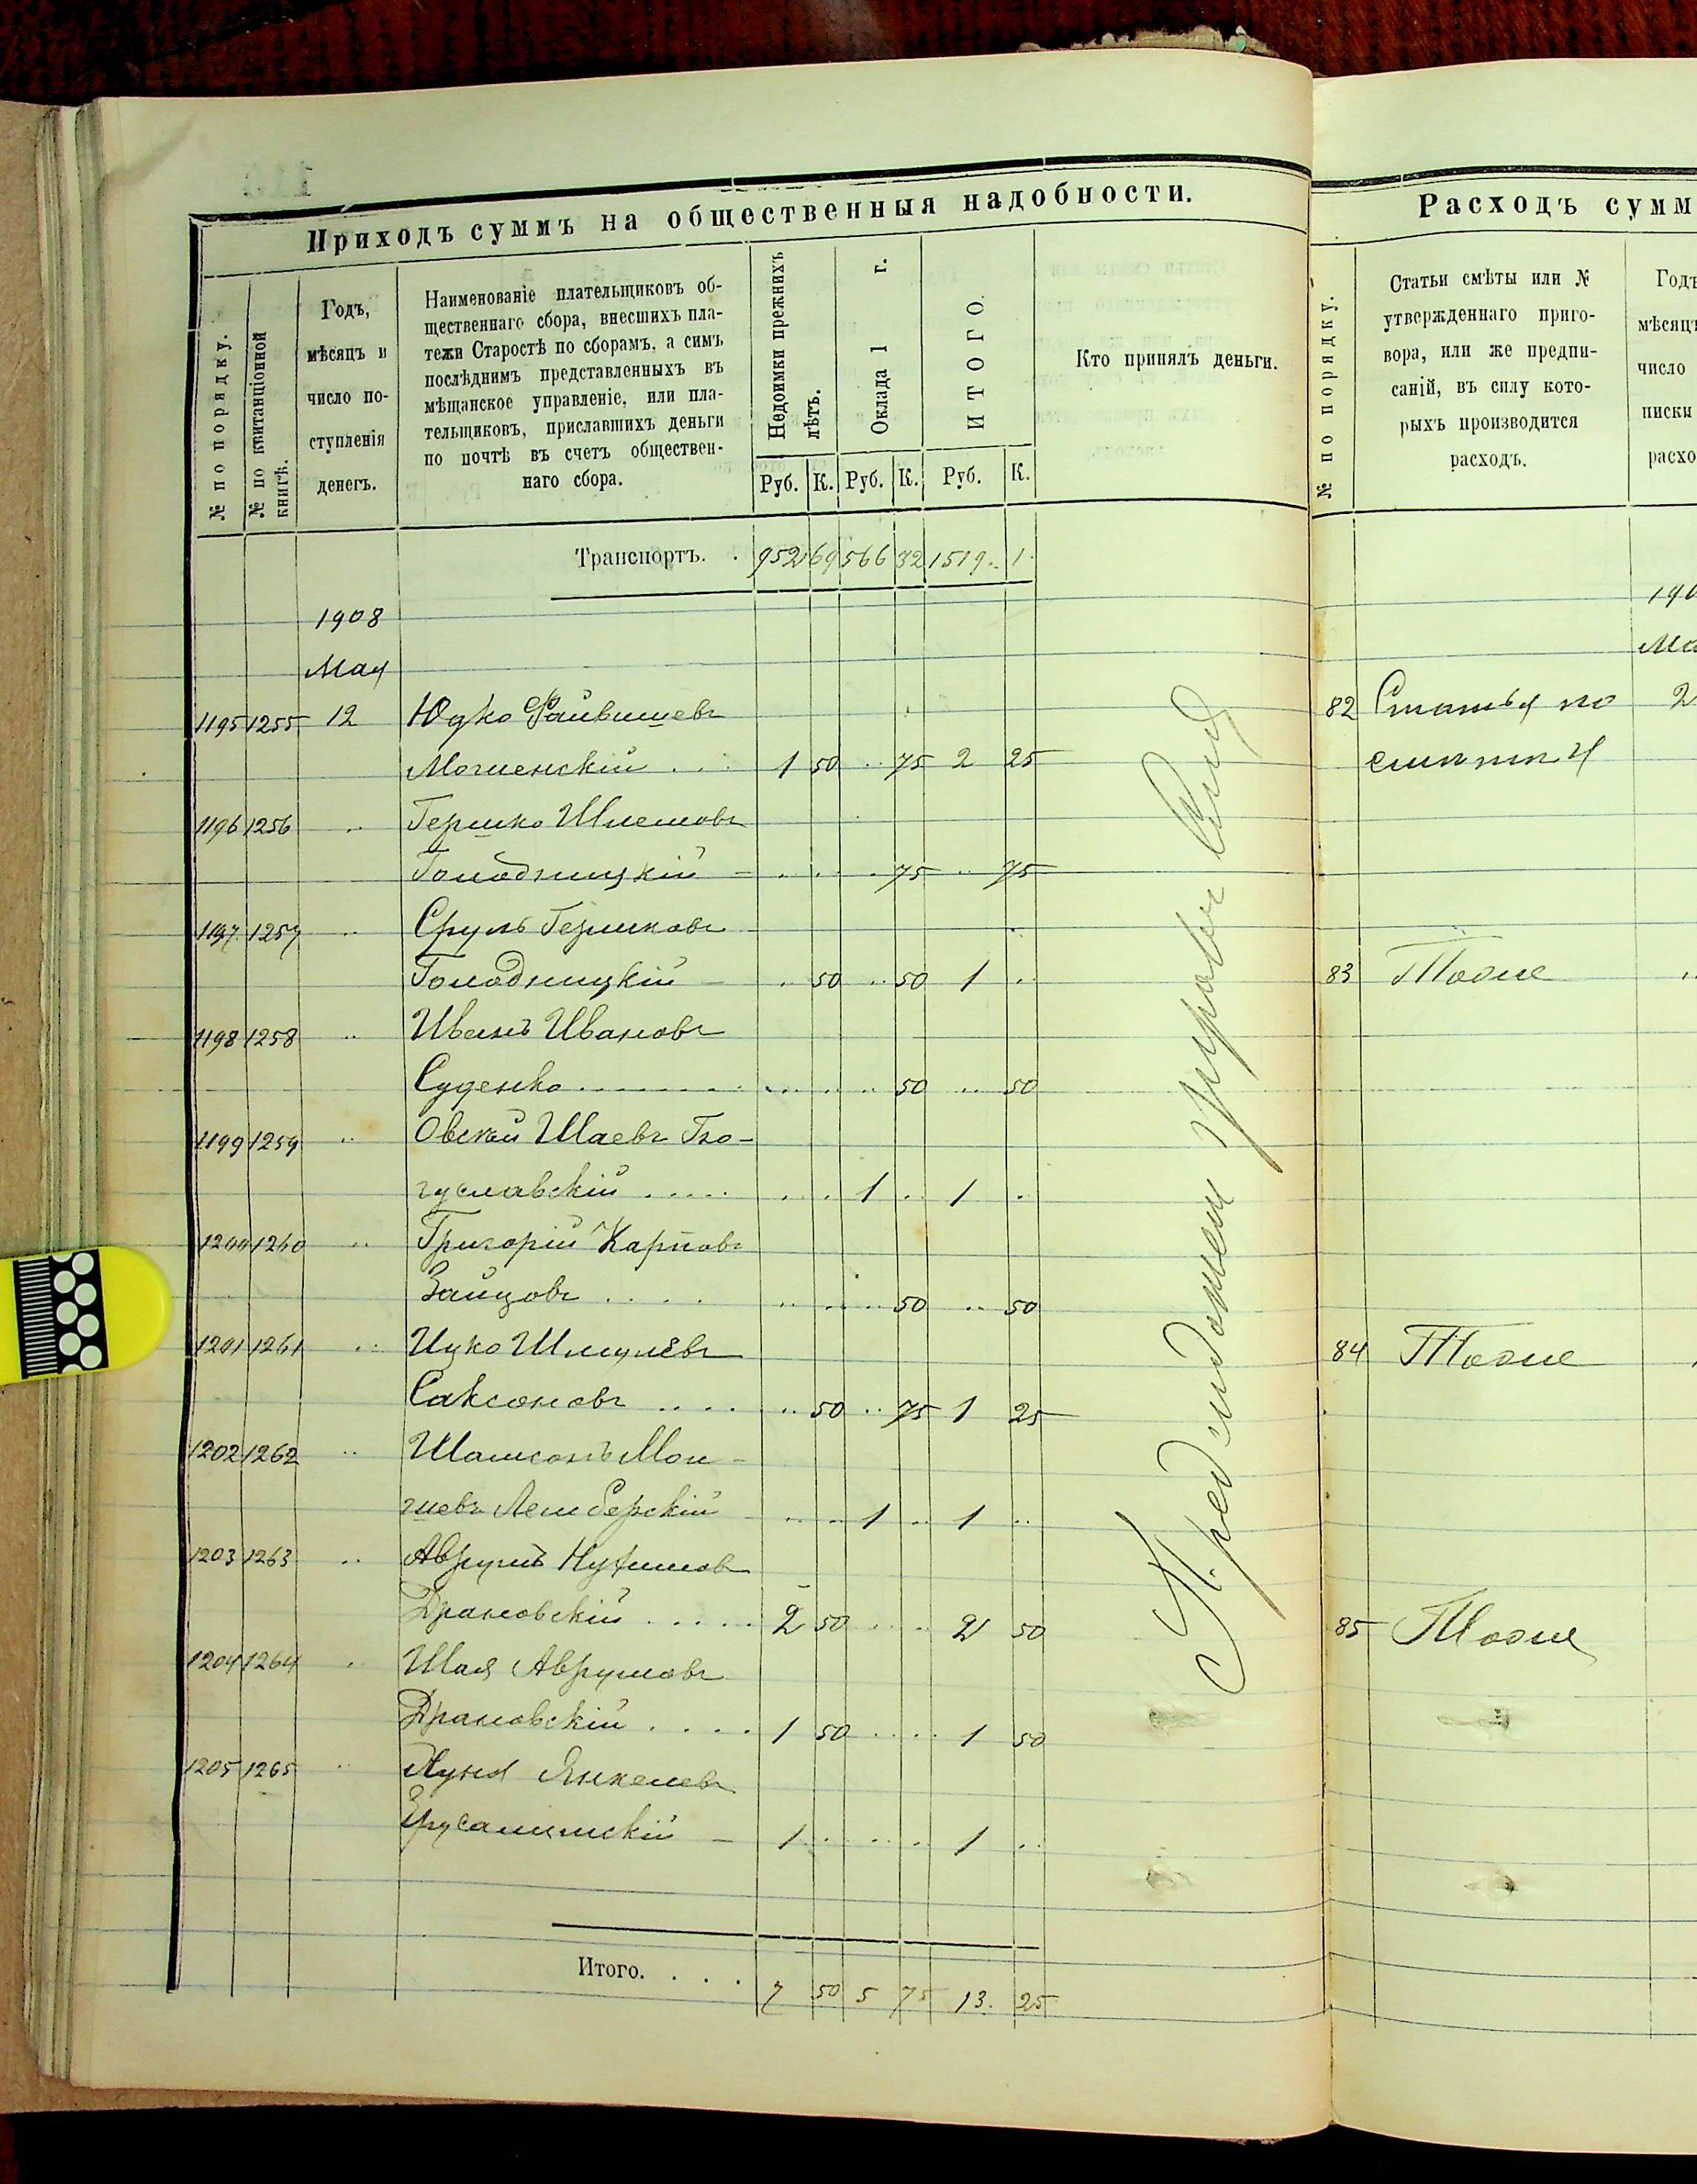 Приходъ суммъ на общественныя надобности.
№ по порядку.
№ по квитанціонной книгѣ.
Годъ,
мѣсяцъ и
число по-
ступленія
денегъ.
Наименованіе плательщиковъ об-
щественнаго сбора, внесшихъ пла-
тежи Старостѣ по сборамъ, а симъ
послѣднимъ представленныхъ въ
мѣщанское управленіе, или пла-
тельщиковъ, приславшихъ деньги
по почтѣ въ счетъ обществен-
наго сбора.
Недоимки прежнихъ
лѣтъ.
Оклада 1 г.
ИТОГО.
Кто принялъ деньги.
Руб. К. Руб. К. Руб. К.
Транспортъ. . 952 69 566 32 1519 1
1908
Мая
1195 1255 12 Юдко Файвишевъ
Могиленскій . . . 1 50 .. 75 2 25
1196 1256 .. Гершко Шлемовъ
Голодницкій - . . . 75 .. 75
1197 1257 .. Сруль Гершковъ
Голодницкій - .. 50 .. 50 1 ..
1198 1258 .. Иванъ Ивановъ
Суденко . . . . 50 .. 50
1199 1259 .. Овсей Шаевъ Бо-
гуславскій . . . . . 1 .. 1 .
1200 1260 .. Григорій Карповъ
Зайцовъ . . . . 50 .. 50
1201 1261 .. Ицко Шмулевъ
Саксоновъ . . . . .. 50 .. 75 1 25
1202 1262 .. Шамсонъ Мои-
шевъ Лембергскій . . 1 .. 1 ..
1203 1263 .. Аврумъ Нухимовъ
Драновскій . . . . . 2 50 . . 2 50
1204 1264 . Шая Аврумовъ
Драновскій . . . . 1 50 . . 1 50
1205 1265 .. Янкелевъ
Ерусалимскій - 1 . . . 1 ..
Итого. . . . 7 50 5 75 13. 25
Расходъ сумм
№ по порядку.
Статьи смѣты или №
утвержденнаго приго-
вора, или же предпи-
саній, въ силу кото-
рыхъ производится
расходъ.
Годъ
мѣсяцъ
число
писки
расхо
190
Ма
82 Статья по 2
смѣты
83 Тоже
84 Тоже
85 Тоже